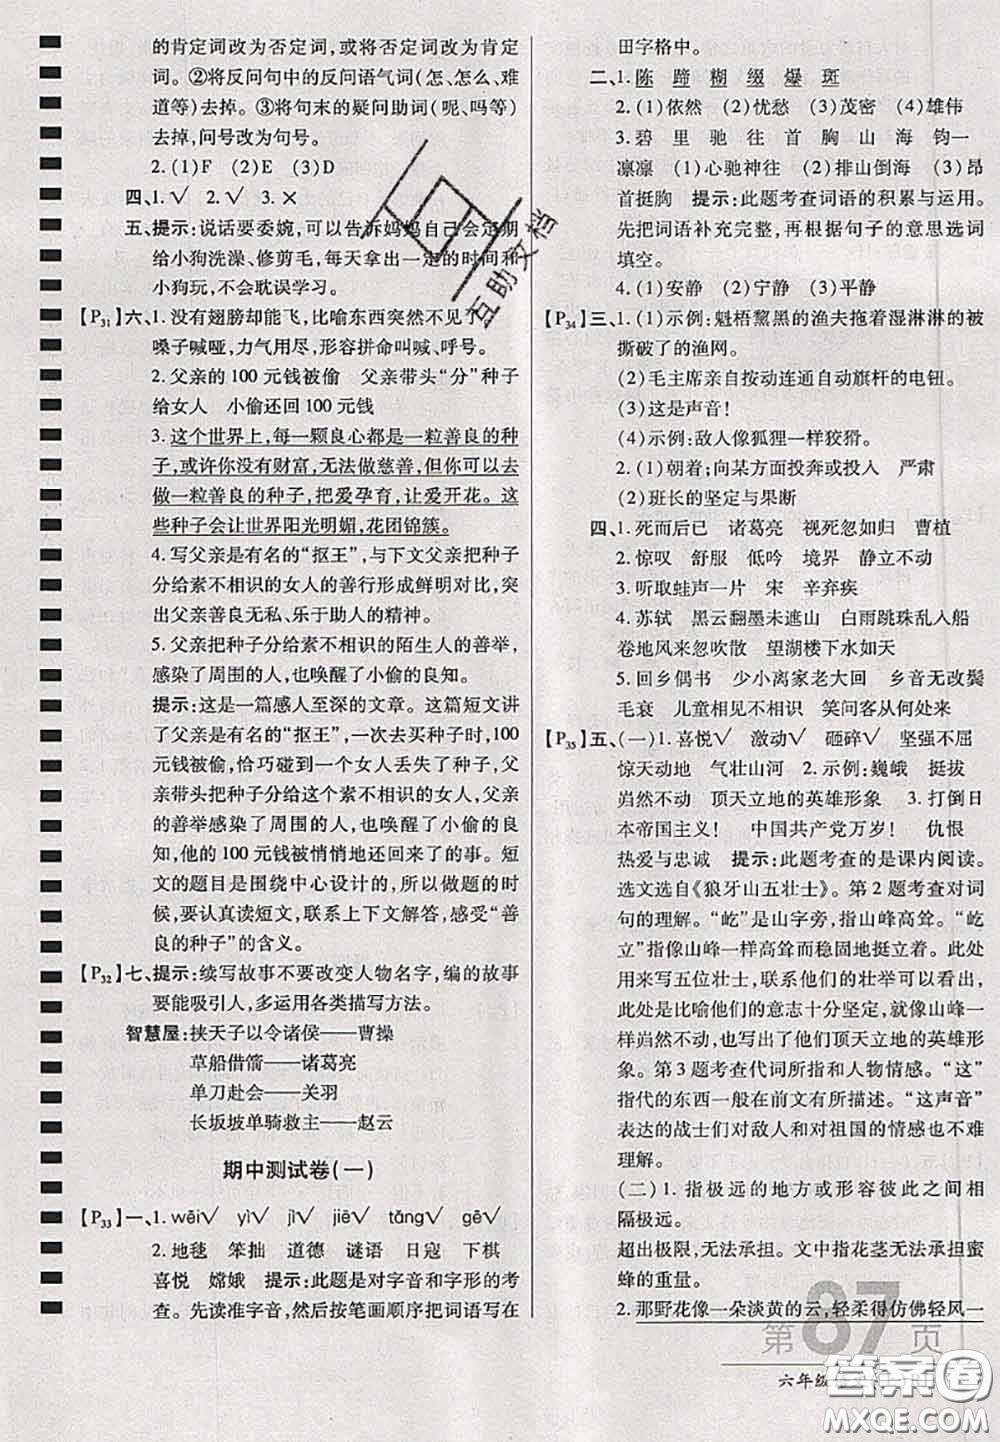 的肯定词改为否定词，或将否定词改为肯定
词。②将反问句中的反问语气词(怎、怎么、难
道等)去掉。③将句末的疑问助词(呢、吗等)
去掉，问号改为句号。
2.(1)F　(2)E　(3)D
四、1.√　2.√　3.×
五、提示：说话要委婉，可以告诉妈妈自己会定期
给小狗洗澡、修剪毛，每天拿出一定的时间和
小狗玩，不会耽误学习。
【P31】六、1.没有翅膀却能飞，比喻东西突然不见了。
嗓子喊哑，力气用尽，形容拼命叫喊、呼号。
2.父亲的100元钱被偷　父亲带头“分”种子
给女人　小偷还回100元钱
3.这个世界上，每一颗良心都是一粒善良的种
子，或许你没有财富，无法做慈善，但可以去
做一粒善良的种子，把爱孕育，让爱开花。这
些种子会让世界阳光明媚，花团锦簇。
4.写父亲是有名的“抠王”，与下文父亲把种子
分给素不相识的女人的善行形成鲜明对比，突
出父亲善良无私、乐于助人的精神。
5.父亲把种子分给素不相识的陌生人的善举，
感染了周围的人，也唤醒了小偷的良知。
提示：这是一篇感人至深的文章。这篇短文讲
了父亲是有名的“抠王”，一次去买种子，100
元钱被偷，恰巧碰到一个女人丢失了种子，父
亲带头把种子分给这个素不相识的女人，父亲
的善举感染了周围的人，也唤醒了小偷的良
知，他的100元钱被悄悄地还回来了的事。短
文的题目是围绕中心设计的，所以做题的时
候，要认真读短文，联系上下文解答，感受“善
良的种子”的含义。
【P32】七、提示：续写故事不要改变人物名字，编的故事
要能吸引人，多运用各类描写方法。
智慧屋：挟天子以令诸侯——曹操
草船借箭——诸葛亮
单刀赴会——关羽
长坂坡单骑救主——赵云
期中测试卷(一)
【P33】一、1.wēi√　yì√　jì√　jiē√　tǎng√　gē√
2.地毯　笨拙　道德　谜语　日寇　下棋
喜悦　嫦娥　提示：此题是对字音和字形的考
查。先读准字音，然后按笔画顺序把词语写在
田字格中。
二、1.陈　蹄　糊　缀　爆　斑
2.(1)依然　(2)忧愁　(3)茂密　(4)雄伟
3.碧　里　驰　往　首　胸　山　海　钧一
凛凛　(1)心驰神往　(2)排山倒海　(3)昂
首挺胸　提示：此题考查词语的积累与运用。
先把词语补充完整，再根据句子的意思选词
填空。
4.(1)安静　(2)宁静　(3)平静
【P34】三、1.(1)示例：魁梧黧黑的渔夫拖着湿淋淋的被
撕破了的渔网。
(2)毛主席亲自按动连通自动旗杆的电钮。
(3)这是声音！
(4)示例：敌人像狐狸一样狡猾。
2.(1)朝着；向某方面投奔或投入　严肃
(2)班长的坚定与果断
四、1.死而后已　诸葛亮　视死忽如归　曹植
2.惊叹　舒服　低吟　境界　静立不动
3.听取蛙声一片　宋　辛弃疾
4.苏轼　黑云翻墨未遮山　白雨跳珠乱入船
卷地风来忽吹散　望湖楼下水如天
5.回乡偶书　少小离家老大回　乡音无改鬓
毛衰　儿童相见不相识　笑问客从何处来
【P35】五、(一)1.喜悦√　激动√　砸碎√　坚强不屈
惊天动地　气壮山河　2.示例：巍峨　挺拔
岿然不动　顶天立地的英雄形象　3.打倒日
本帝国主义！　中国共产党万岁！　仇恨
热爱与忠诚　提示：此题考查的是课内阅读。
选文选自《狼牙山五壮士》。第2题考查对词
句的理解。“屹”是山字旁，指山峰高耸。“屹
立”指像山峰一样高耸而稳固地挺立着。此处
用来写五位壮士，联系他们的壮举可以看出，
此处是比喻他们的意志十分坚定，就像山峰一
样岿然不动，也写出了他们顶天立地的英雄形
象。第3题考查代词所指和人物情感。“这”
指代的东西一般在前文有所描述。“这声音”
表达的战士们对敌人和对祖国的情感也不难
理解。
(二)1.指极远的地方或形容彼此之间相
隔极远。
超出极限，无法承担。文中指花茎无法承担蜜
蜂的重量。
2.那野花像一朵淡黄的云，轻柔得仿佛轻风一
第87页
六年级
互助文档
答案圈
MXQE.COM